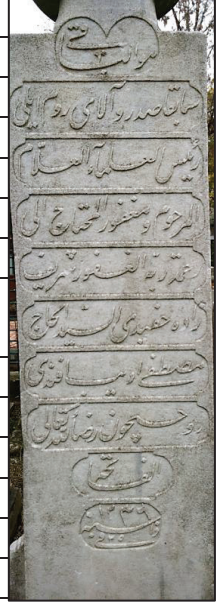 هو الباقي
سابقا صدر والای روم ایلی
رئیس العلماء العلام
المرحوم و مغفور المحتاج الی
رحمة ربه الغفور شریف
زاده حفیدی السید الحاج
مصطفی افندی
روحیچون رضاء لله تعالی
الفاتحه
سنه ١٢٤٦